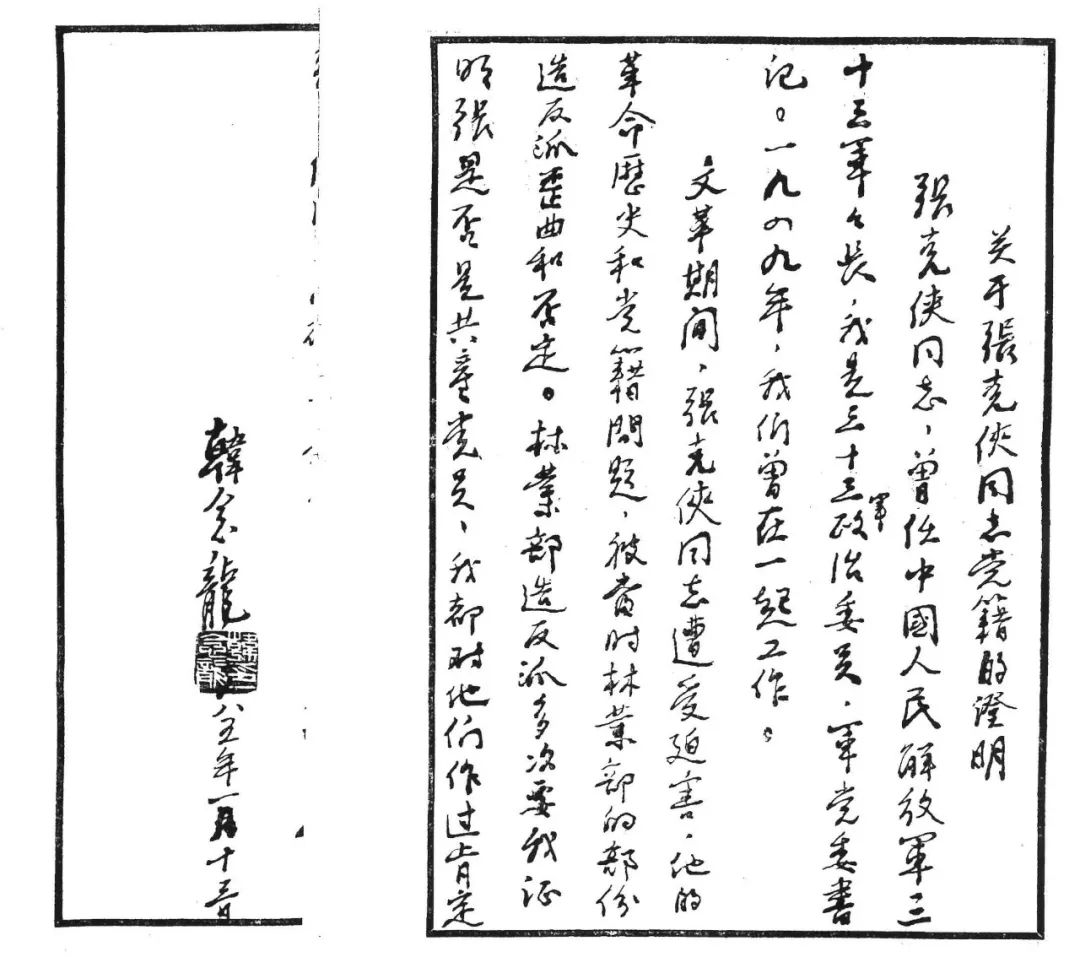 关于張克俠同志党籍的澄明
張克俠同志、曾任中國人民解放軍三
十三軍々長，我是三十三軍政治委员、軍党委書
记。一九四九年，我们曾在一起工作。
文革期间，張克俠同志遭受廹害，他的
革命歷史和党籍問题，被當时林業部的部份
造反派歪曲和否定。林業部造反派多次要我证
明張是否是共産党员，我都对他们作过肯定
韓念龍
八五年一月十三日